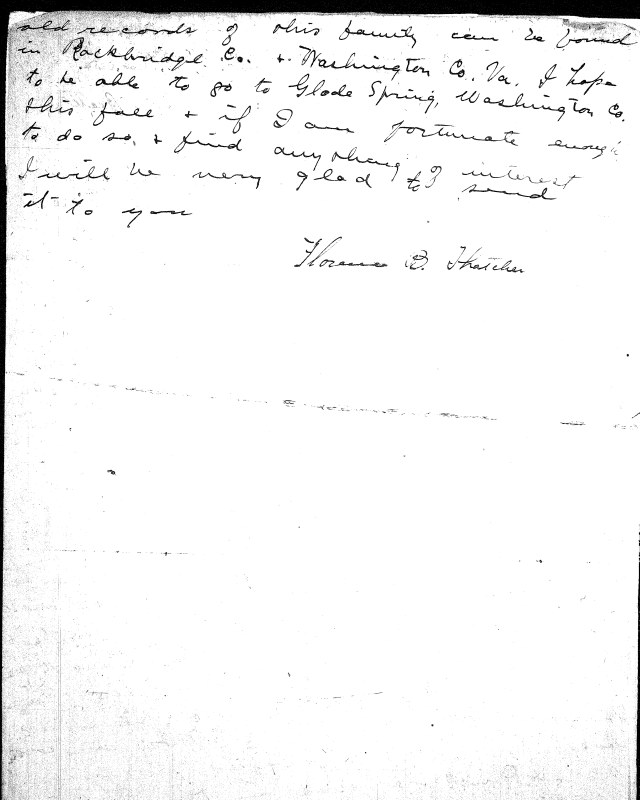 old records of this family can be found
in Rockbridge Co. & Washington Co. Va. I hope
to be able to go to Glade Spring, Washington Co.
this fall & if I am fortunate enough
to do so, & find anything of interest
I will be very glad to send
it to you
Florence B. Thatcher